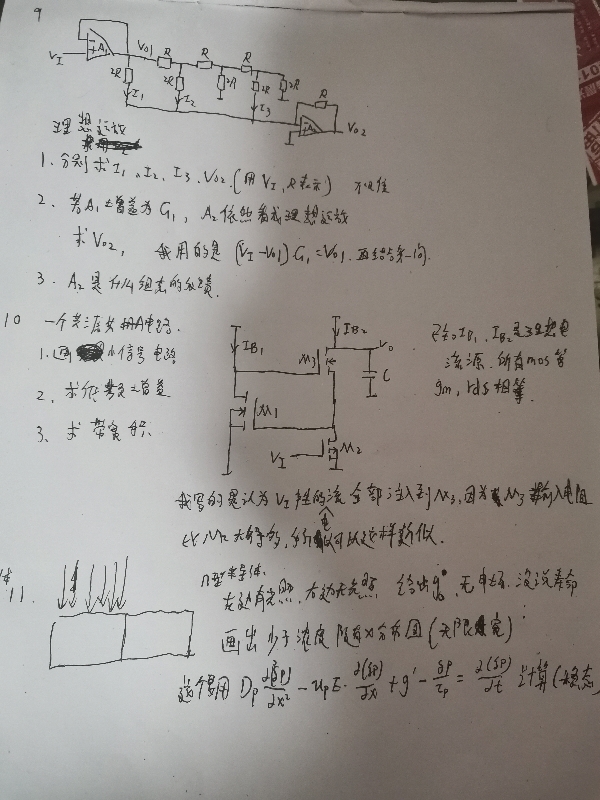 9
VI A1 VO1 R R R
2R 2R 2R 2R 2R R
I1 I2 I3 A2 VO2
理想运放
1、分别求 I1、I2、I3、VO2.(用 VI, R表示)
2、若A1增益为G1, A2依然看成理想运放
求VO2, 我用的是 (VI-VO1)G1=VO1.再结合第一问.
3、A2是什么组态的反馈.
10 一个共源共栅电路.
1、画 小信号电路
2、求 增益
3、求 带宽积.
IB1 IB2 M3 VO C M1 VI M2
已知IB1、IB2是理想电
流源.所有mos管
gm, rds相等.
我写的是认为VI产生的电流全部注入到M3,因为M3输入电阻
比M2 得多,所以可以这样近似.
11.
n型半导体.
左边有光照,右边无光照 给出g0',无电场.没说寿命
画出少子浓度随着x分布图(无限宽)
这个要用 Dp ∂²(δp)/∂x² - upE·∂(δp)/∂x + g' - δp/τp = ∂(δp)/∂t 计算(稳态)